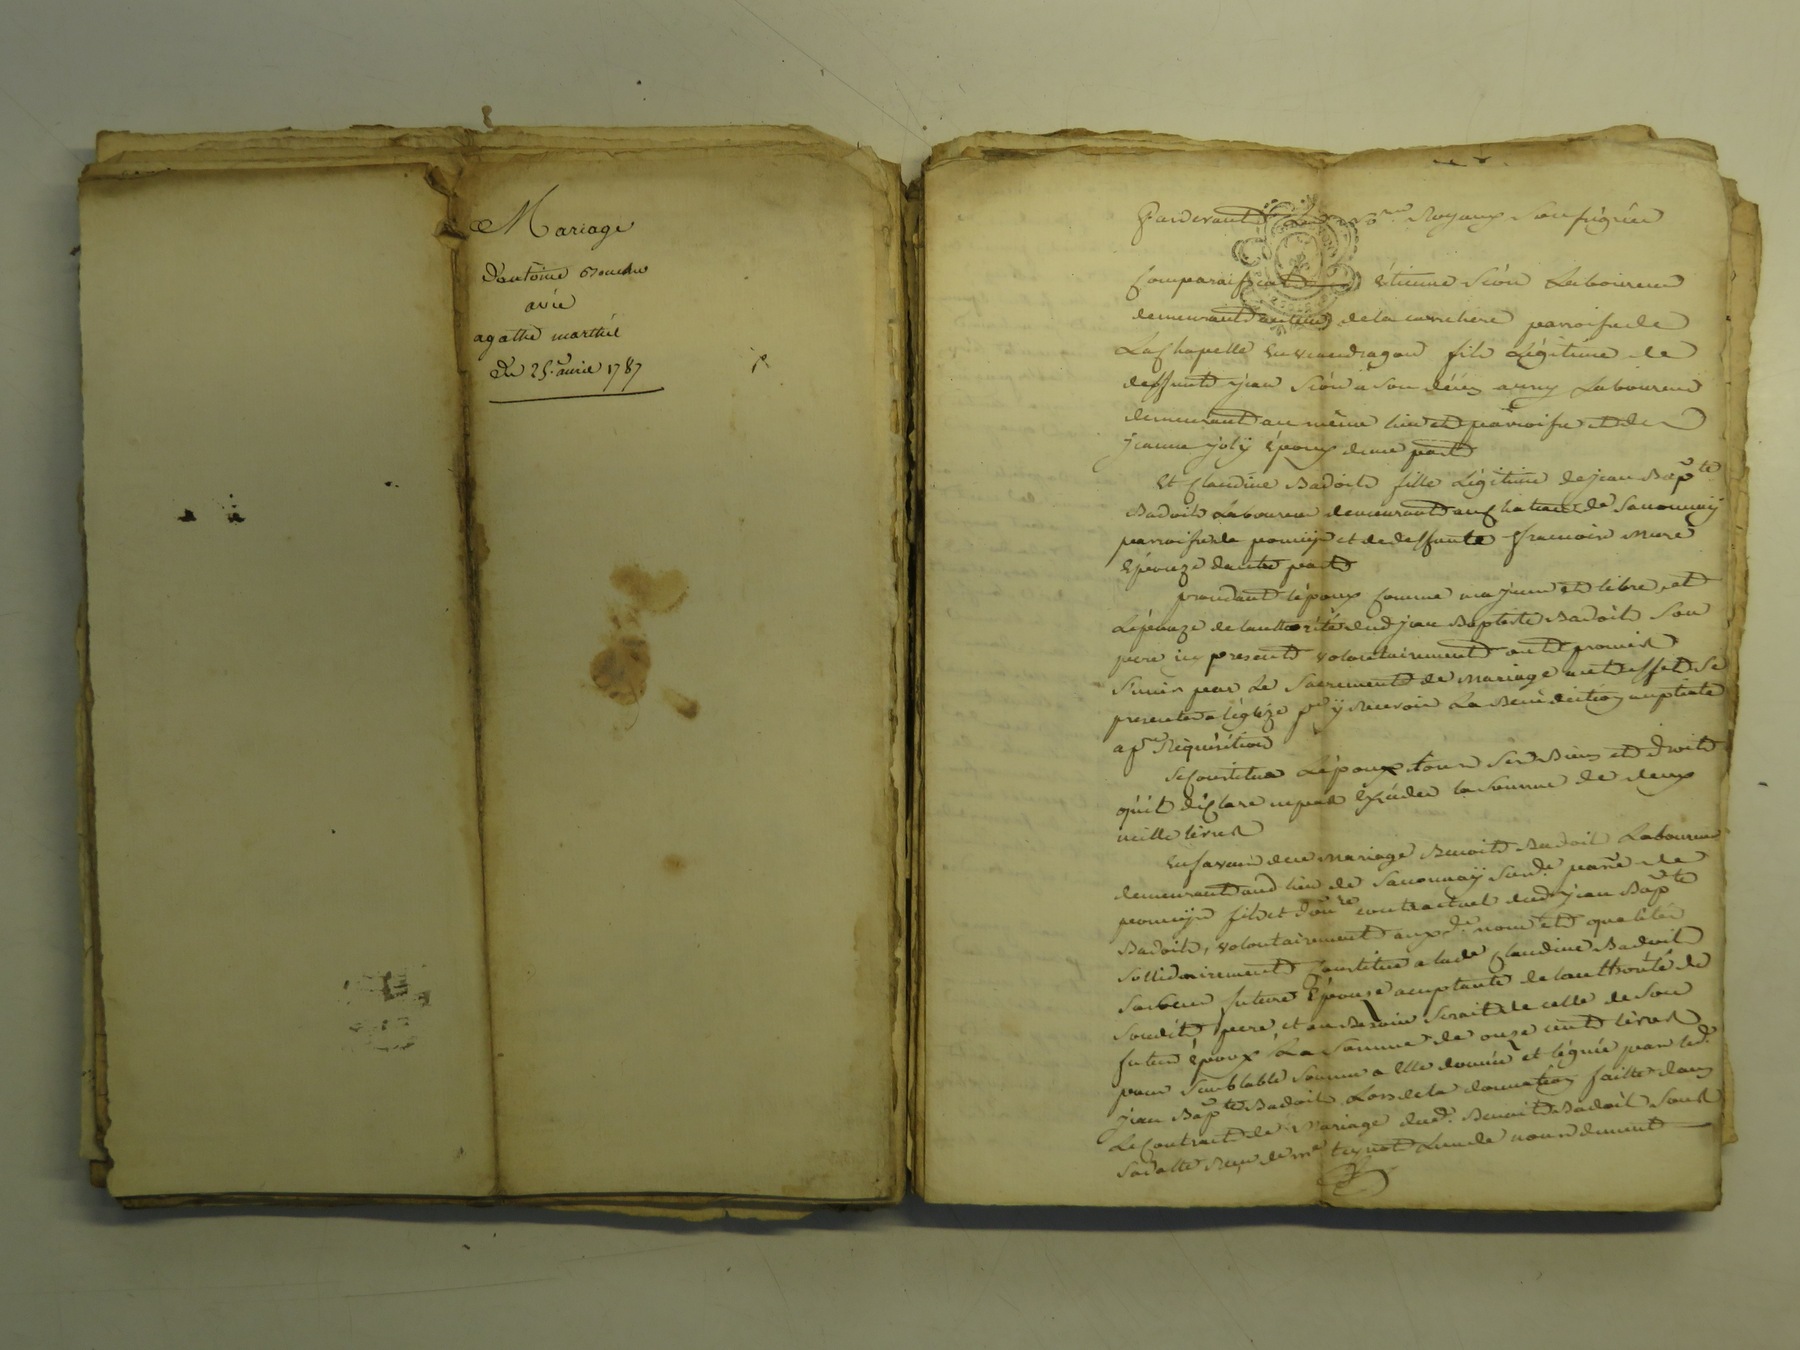 Mariage
d'antoine
avec
agathe marthel
du 25e. avril 1787
Pardevant Les No.res Royaux Soussignés
Comparaissent étienne Séon Laboureur
demeurant au lieu de la parroisse de
La Chapelle en vaudragon fils Légitime de
deffunt jean Séon a son décès Laboureur
demeurant au même lieu et parroisse et de
jeanne joly époux d'une part
Et Claudine Badoit fille Légitime de jean Bapte
Badoit Laboureur demeurant au chateau de Savonnay
parroisse de pomeÿs et de deffunte francoise Mure
Epouze dautre part
procedant l'époux comme majeur et libre et
Lepouze de lauthorité dud jean Baptiste Badoit Son
pere icy present volontairement ont promis
S'unir par Le Sacrement de Mariage a cet effet Se
presenter a léglize pr. ÿ Recevoir La Bénédiction nuptiale
a pre. Réquisition
Se Constitue L'époux tous Ses Biens et droits
qu'il déclare ne pas Excéder la Somme de deux
mille livres
En faveur de ce Mariage Benoit Badoit Laboureur
demeurant aud lieu de Savonnaÿ Susd. parre. de
pomeÿs fils et donre contractuel dud jean Bapte
Badoit, volontairement auxd. nom et qualités
Sollidairement Constitue a lade Claudine Badoit
Sa Sœur future épouze acceptante de lauthorité de
Soudit pere, et au Besoin Serait de celle de Son
futur époux La Somme de onze cent livres
pour Semblable Somme a Elle donnée et léguée par led.
jean Bapte Badoit Lors de la donnation faitte dans
Le Contract de Mariage dud. Benoit Badoit Sous
Sa datte Reçu de me L'un de nous dument